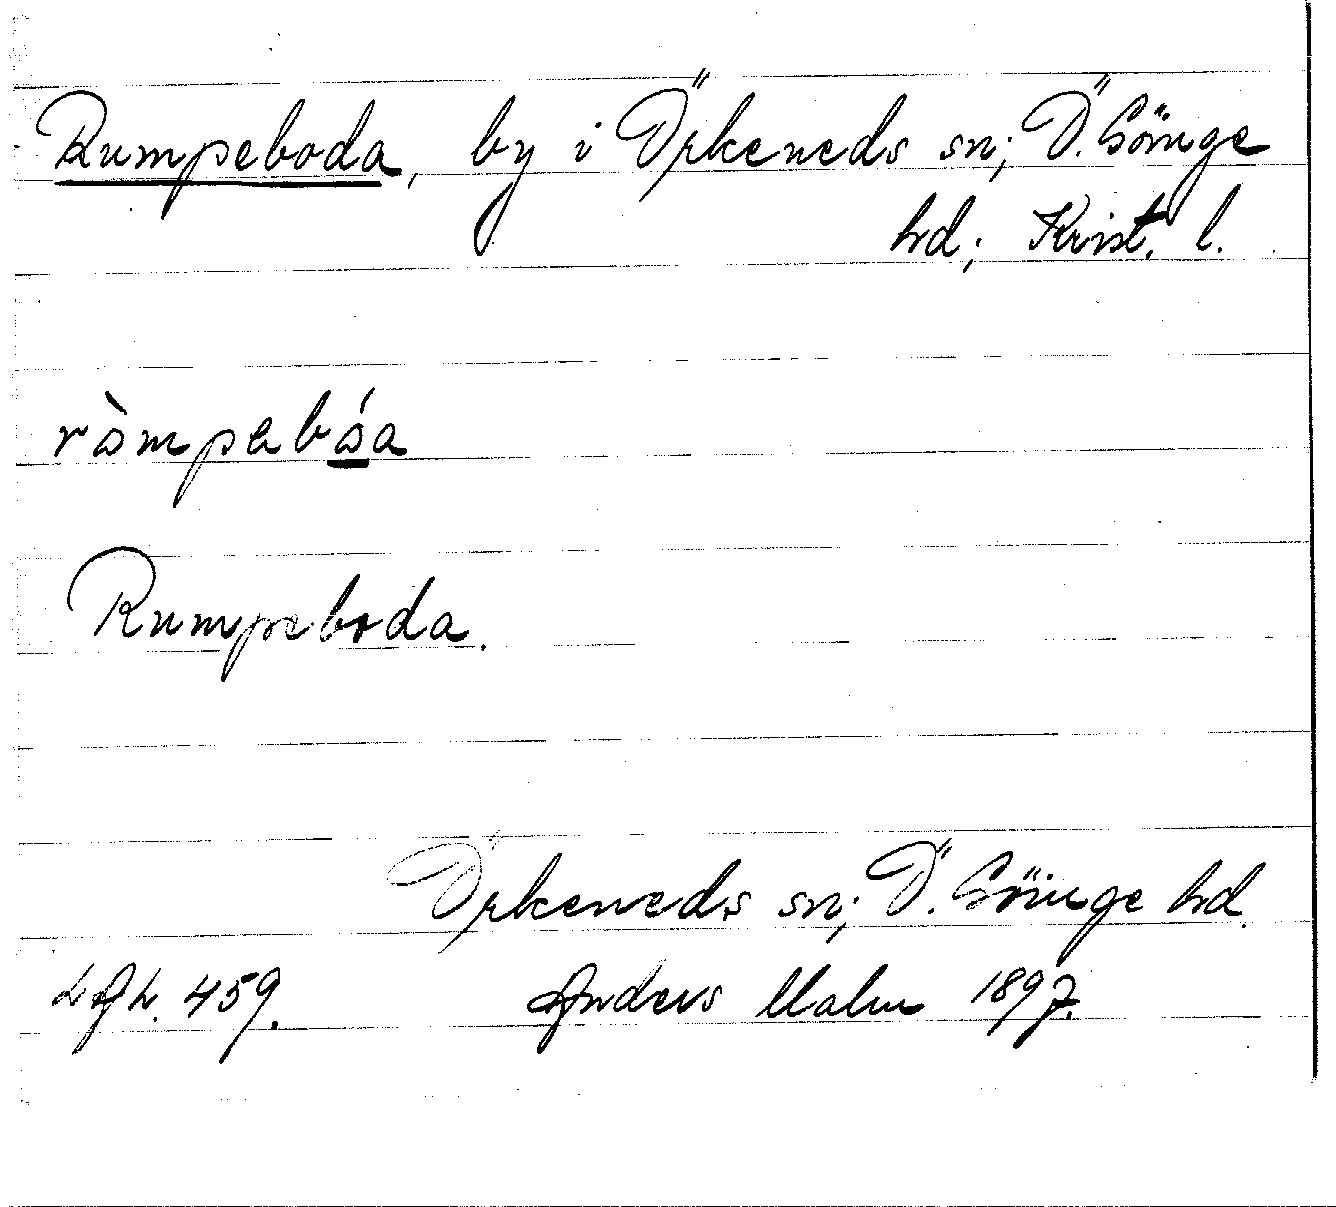 Rumpeboda, by i Örkeneds sn; Ö. Göinge
hd; Krist. l.
Rumpeboda.
Örkeneds sn; Ö. Göinge hd.
459. Anders Malm 1897.